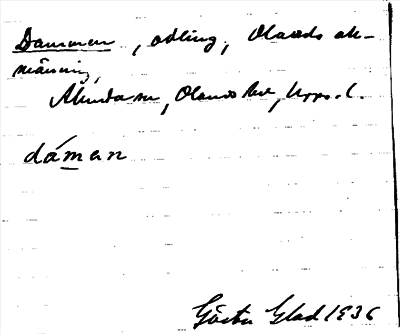 Dammen, odling, Olands al-
männing,
Alunda sn, Olands hd, Upps. l.
dáman
Gösta Glad 1936